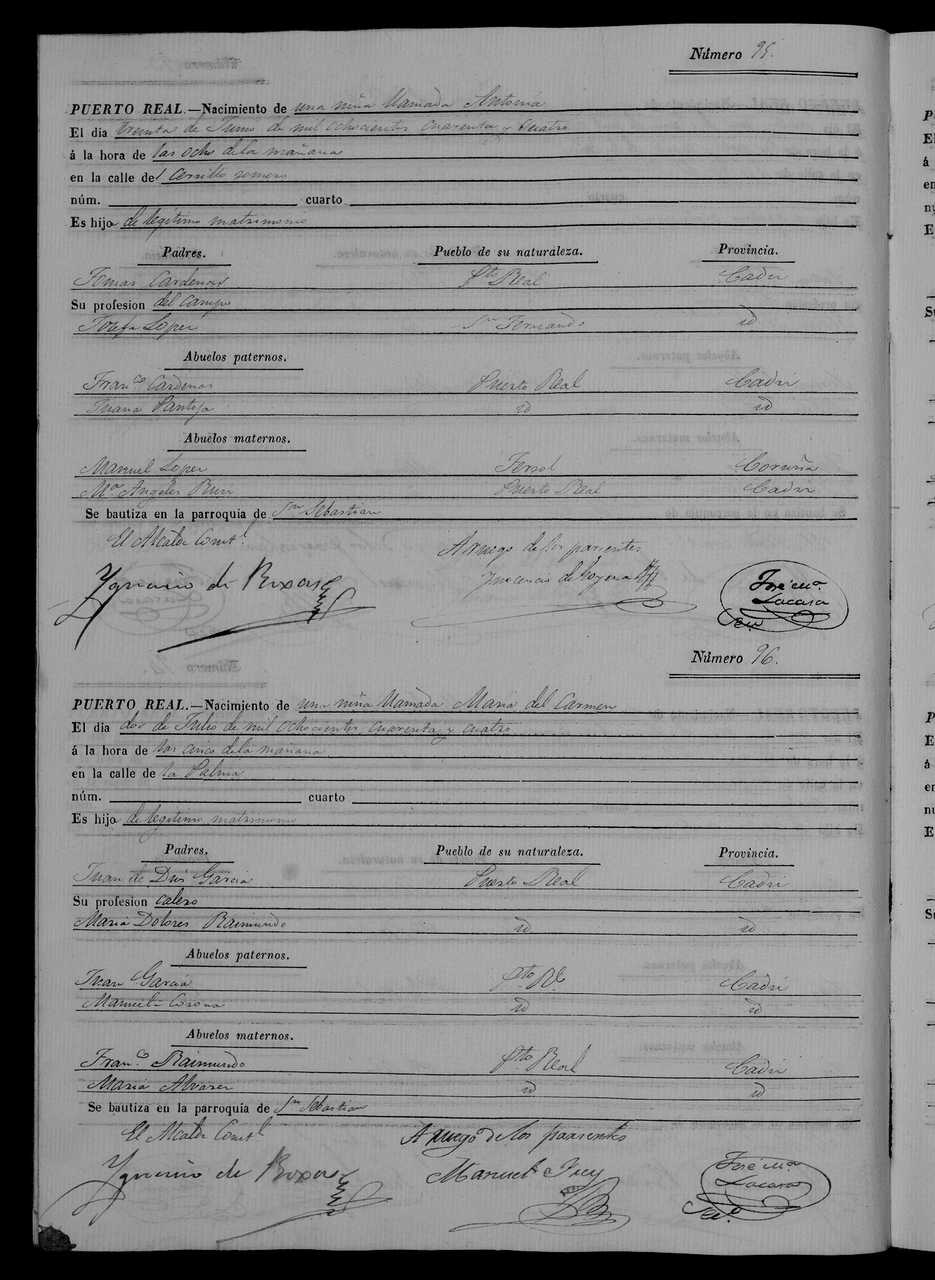 Número 95.
PUERTO REAL.—Nacimiento de una niña llamada Antonia
El dia treinta de Junio de mil ochocientos cuarenta y cuatro
á la hora de las ocho de la mañana
en la calle del Cerrillo romero
núm. cuarto
Es hijo de legitimo matrimonio
Padres. Pueblo de su naturaleza. Provincia.
Tomas Cardenas Pto Real Cadiz
Su profesion del Campo
Josefa Lopez Sn Fernando id
Abuelos paternos.
Franco Cardenas Puerto Real Cadiz
Juana Pantoja id id
Abuelos maternos.
Manuel Lopez Ferrol Coruña
Ma Angeles Puerto Real Cadiz
Se bautiza en la parroquia de Sn Sebastian
El Alcalde Constl A ruego de los parientes
Ygnacio de Roxas Ynocencio de José Ma
Lacasa
Seco
Número 96.
PUERTO REAL.—Nacimiento de una niña llamada Maria del Carmen
El dia dos de Julio de mil ochocientos cuarenta y cuatro
á la hora de las cinco de la mañana
en la calle de la Palma
núm. cuarto
Es hijo de legitimo matrimonio
Padres. Pueblo de su naturaleza. Provincia.
Juan de Dios Garcia Puerto Real Cadiz
Su profesion calero
Maria Dolores Raimundo id id
Abuelos paternos.
Juan Garcia Pto Rl Cadiz
Manuela Corona id id
Abuelos maternos.
Franco Raimundo Pto Real Cadiz
Maria Alvarez id id
Se bautiza en la parroquia de Sn Sebastian
El Alcalde Constl A ruego de los parientes
Ygnacio de Roxas Manuel José Ma
Lacasa
Seco